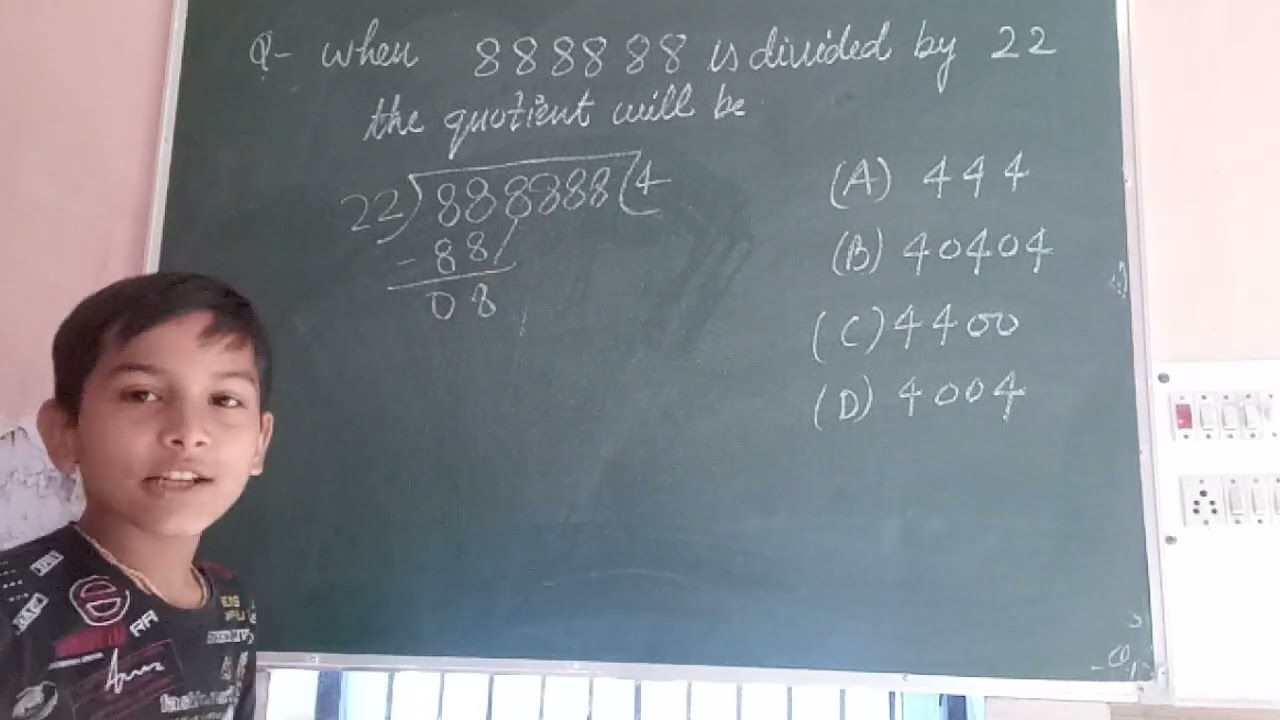 Q- when 888888 is divided by 22
the quotient will be
22)888888(4
- 88
08
(A) 444
(B) 40404
(C) 4400
(D) 4004
RR